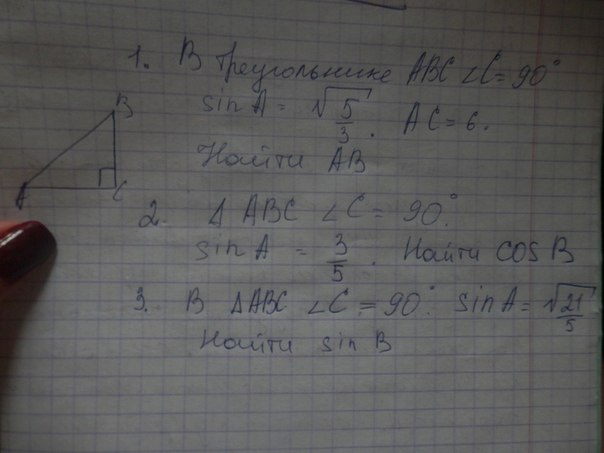 1. В треугольнике ABC ∠C = 90°
sin A = √5/3. AC = 6.
Найти AB
B
A
C
2. Δ ABC ∠C = 90°.
sin A = 3/5. Найти cos B
3. В ΔABC ∠C = 90°. sin A = √21/5
Найти sin B